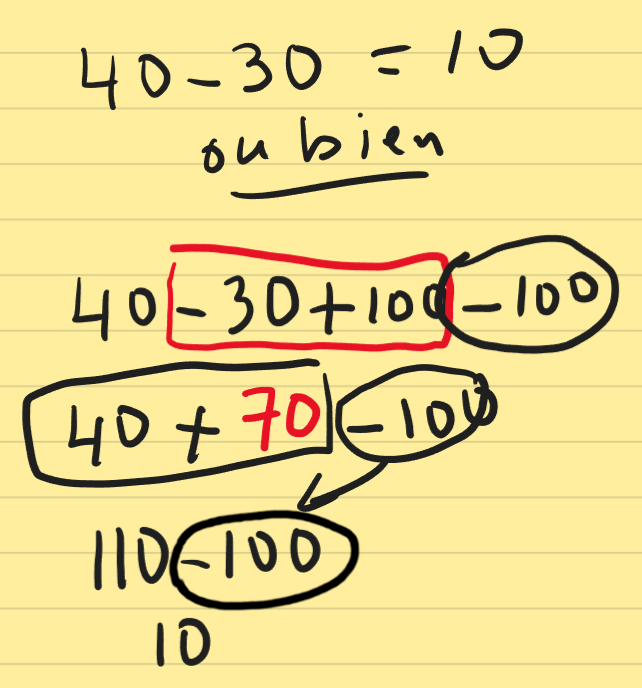 40-30 = 10
ou bien
40-30+100-100
40+70-100
110-100
10